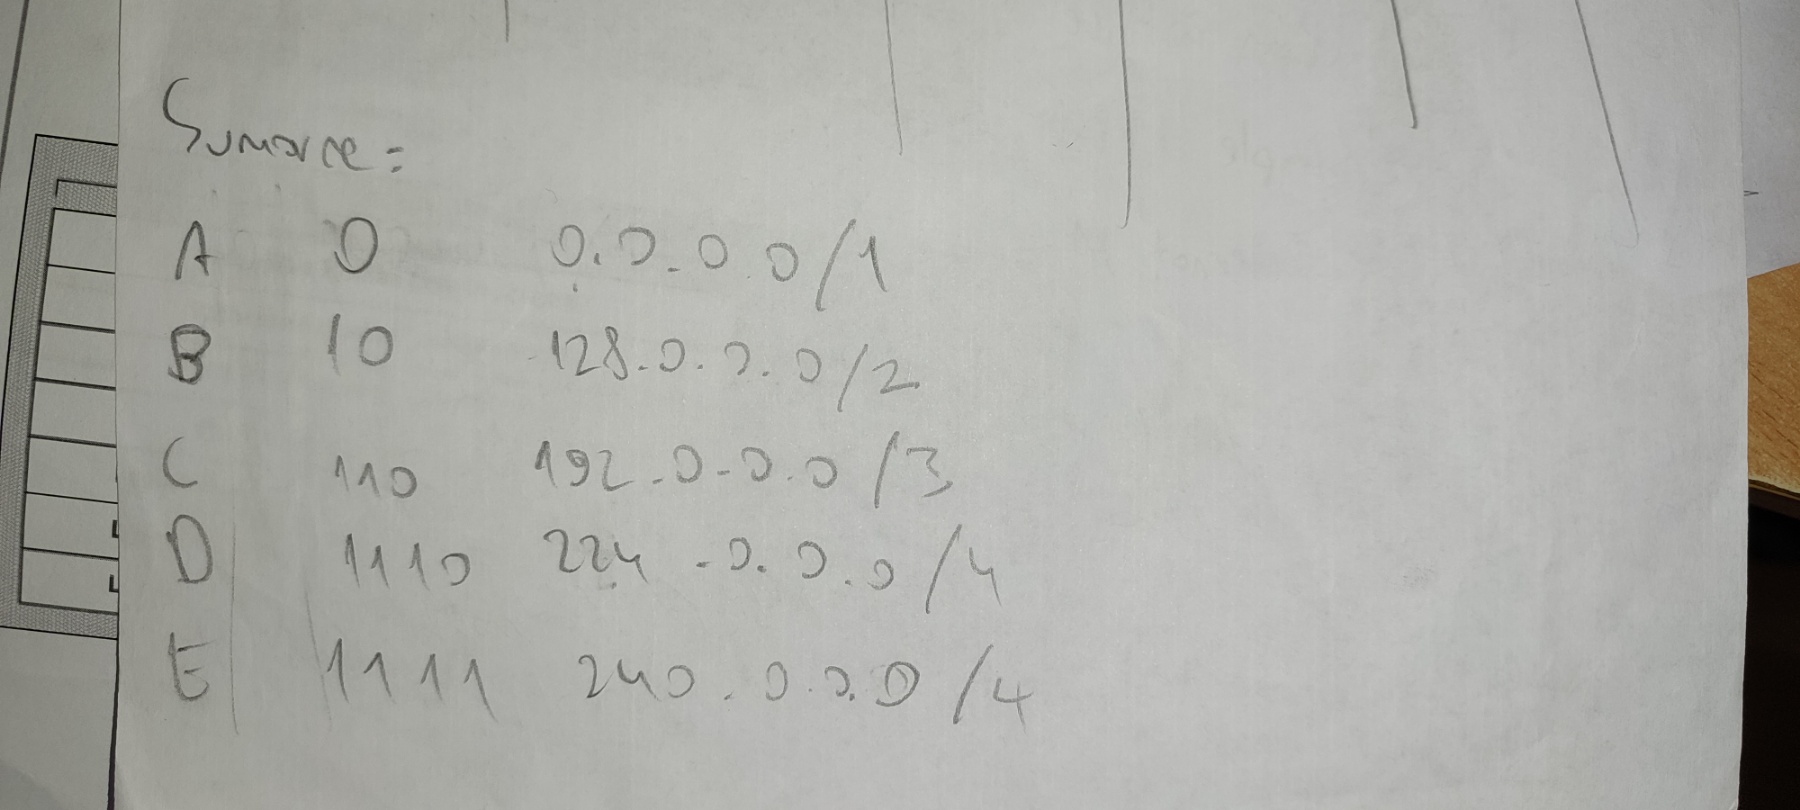 A 0 0.0.0.0/1
B 10 128.0.0.0/2
C 110 192.0.0.0/3
D 1110 224.0.0.0/4
E 1111 240.0.0.0/4